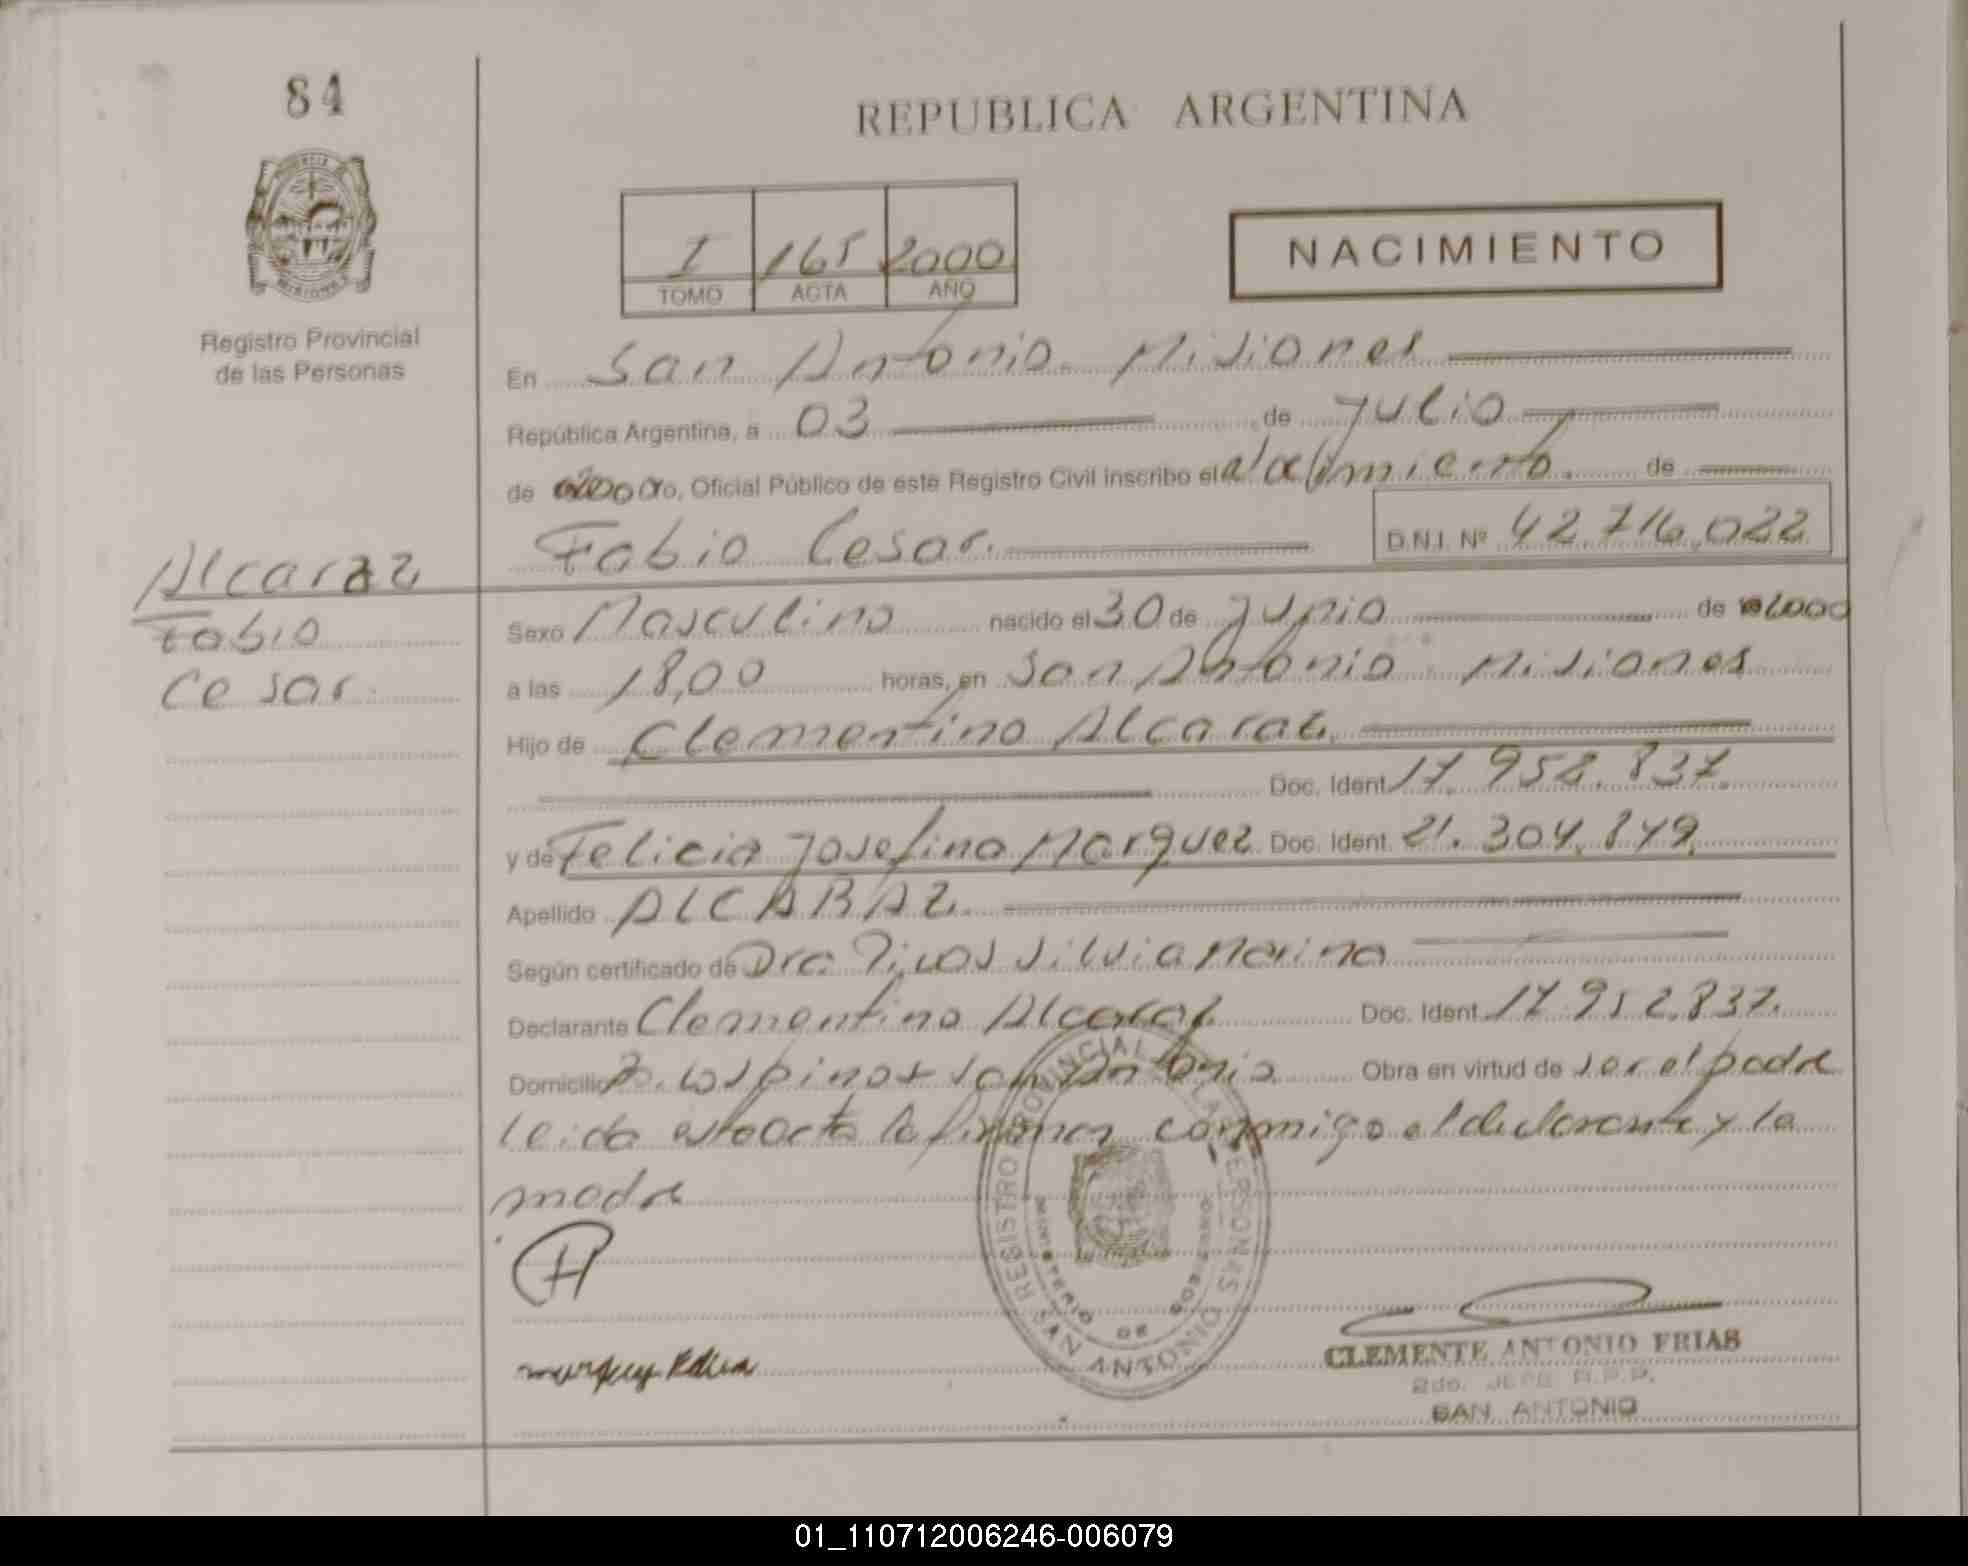 84
REPUBLICA ARGENTINA
I 165 2000
TOMO ACTA AÑO
NACIMIENTO
Registro Provincial
de las Personas
En San Antonio Misiones
República Argentina, a 03 de Julio
de Oficial Público de este Registro Civil inscribo el de
Fabio Cesar. D.N.I. Nº 42.716.022
Alcaraz
Fabio
Cesar.
Sexo Masculino nacido el 30 de Junio de 2000
a las 18,00 horas, en San Antonio Misiones
Hijo de Clementino Alcaraz.
Doc. Ident. 17.952.837.
y de Felicia Josefina Marquez Doc. Ident. 21.304.849.
Apellido ALCARAZ.
Según certificado de Dra. Silvia Marina
Declarante Clementino Alcaraz Doc. Ident. 17.952.837.
Domicilio San Antonio Obra en virtud de ser el padre
leida esta acta la firman conmigo el declarante y la
madre
REGISTRO PROVINCIAL DE LAS PERSONAS
MINISTERIO DE GOBIERNO
SAN ANTONIO
CLEMENTE ANTONIO FRIAS
2do. JEFE R.P.P.
SAN ANTONIO
01_110712006246-006079